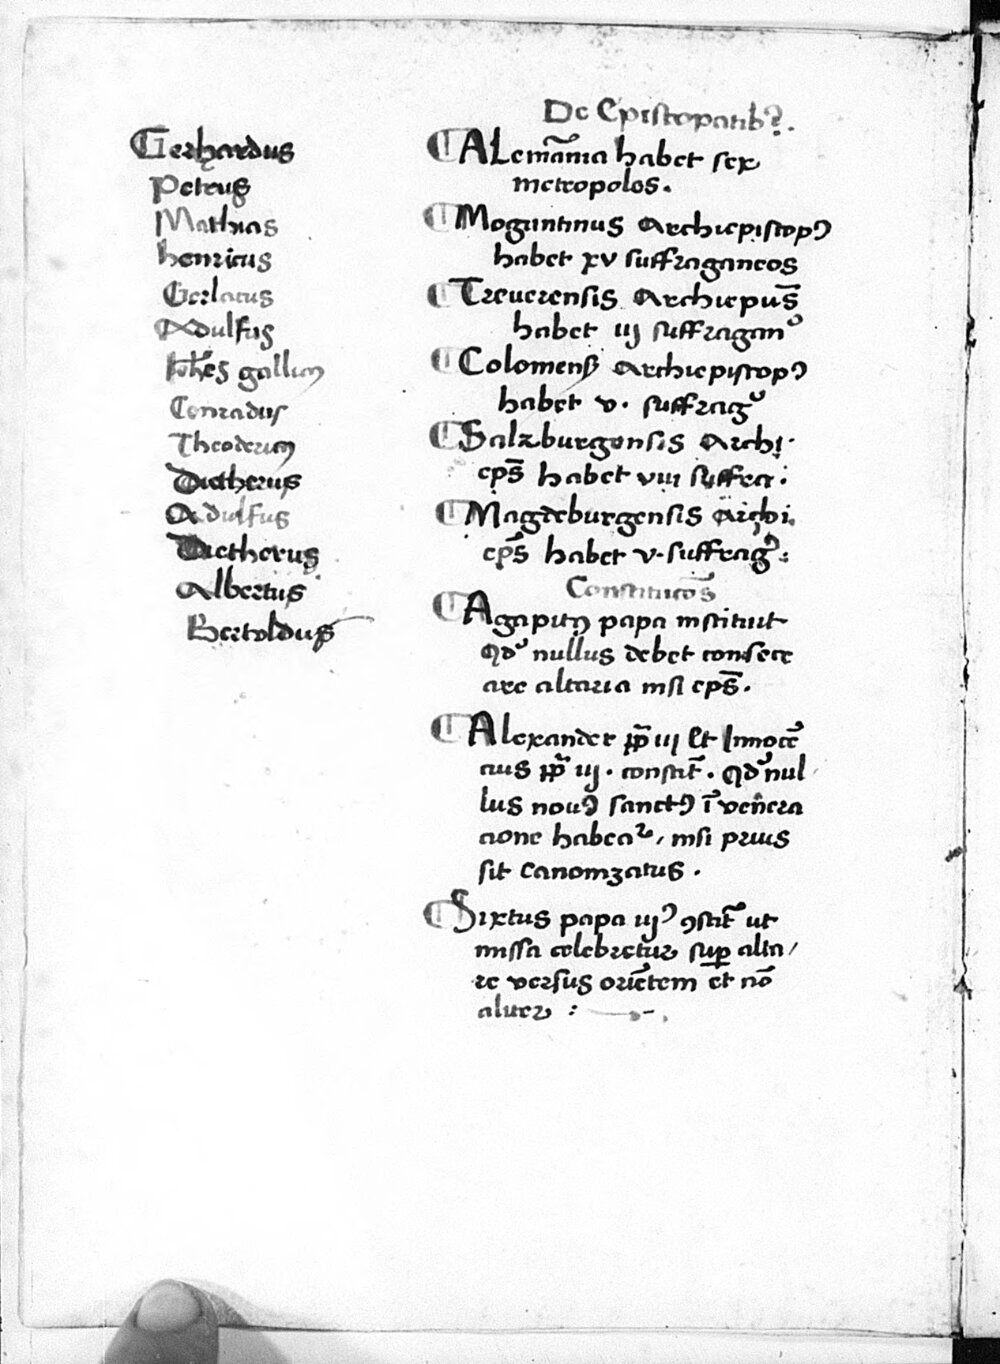 Gerhardus
Petrus
Mathias
henricus
Gerlacus
Adulfus
Joh̄es gallicꝰ
Conradus
Theodericꝰ
Dietherus
Adulfus
Dietherus
Albertus
Bertoldus
De Episcopatibꝰ.
ALemānia habet sex
metropoles.
Moguntinus Archiepiscopꝰ
habet xv suffraganeos
Treuerensis Archiepūs
habet iij suffraganᵒ
Coloniensis Archiepiscopꝰ
habet v. suffragᵒ
Salzburgensis Archi
ep̄s habet viii suffra.
Magdeburgensis Archi
ep̄s habet v. suffragᵒ:
Constitucōs
Agapitꝰ papa instituit
Qdᵒ nullus debet consecr
are altaria nisi ep̄s.
Alexander pp̄ iij Et Innocē
cius pp̄ iij. constit̄. Qdᵒ nul
lus nouꝰ sanctꝰ ī venera
cione habeaᵗ, nisi prius
sit canonizatus.
Sixtus papa iijꝰ ꝯstit̄ ut
missa celebretur suꝑ alta/
re versus oriētem et nō
aliter :